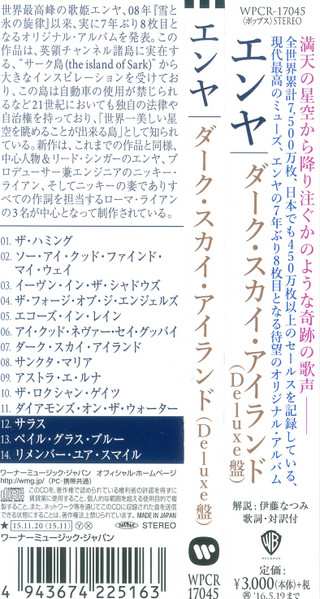 世界最高峰の歌姫エンヤ、08年『雪と
氷の旋律』以来、実に7年ぶり8枚目と
なるオリジナル・アルバムを発表。この
作品は、英領チャンネル諸島に実在す
る、“サーク島(the island of Sark)”から
大きなインスピレーションを受けてお
り、この島は自動車の使用が禁じられ
るなど21世紀においても独自の法律や
自治権を持っており、「世界一美しい星
空を眺めることが出来る島」として知られ
ている。新作は、これまでの作品と同様、
中心人物&リード・シンガーのエンヤ、プ
ロデューサー兼エンジニアのニッキー・
ライアン、そしてニッキーの妻でありす
べての作詞を担当するローマ・ライアン
の3名が中心となって制作されている。
01. ザ・ハミング
02. ソー・アイ・クッド・ファインド・
マイ・ウェイ
03. イーヴン・イン・ザ・シャドウズ
04. ザ・フォージ・オブ・ジ・エンジェルズ
05. エコーズ・イン・レイン
06. アイ・クッド・ネヴァー・セイ・グッバイ
07. ダーク・スカイ・アイランド
08. サンクタ・マリア
09. アストラ・エ・ルナ
10. ザ・ロクシャン・ゲイツ
11. ダイアモンズ・オン・ザ・ウォーター
12. サラス
13. ペイル・グラス・ブルー
14. リメンバー・ユア・スマイル
ワーナーミュージック・ジャパン オフィシャル・ホームページ
http://wmg.jp/ (PC・携帯共通)
★ 15.11.20 (15.11) Y STEREO
MADE IN JAPAN
ワーナーミュージック・ジャパン
4 943674 225163
エンヤ
ダーク・スカイ・アイランド(Deluxe盤)
WPCR
17045
WPCR-17045
(ポップス) STEREO
満天の星空から降り注ぐかのような奇跡の歌声――
全世界累計7,500万枚、日本でも450万枚以上のセールスを記録している、
現代最高のミューズ、エンヤの7年ぶり8枚目となる待望のオリジナル・アルバム
エンヤ
ダーク・スカイ・アイランド
(Deluxe盤)
解説:伊藤なつみ
歌詞・対訳付
WB
定価:
¥3,000(本体)+税
再 '16.5.19まで